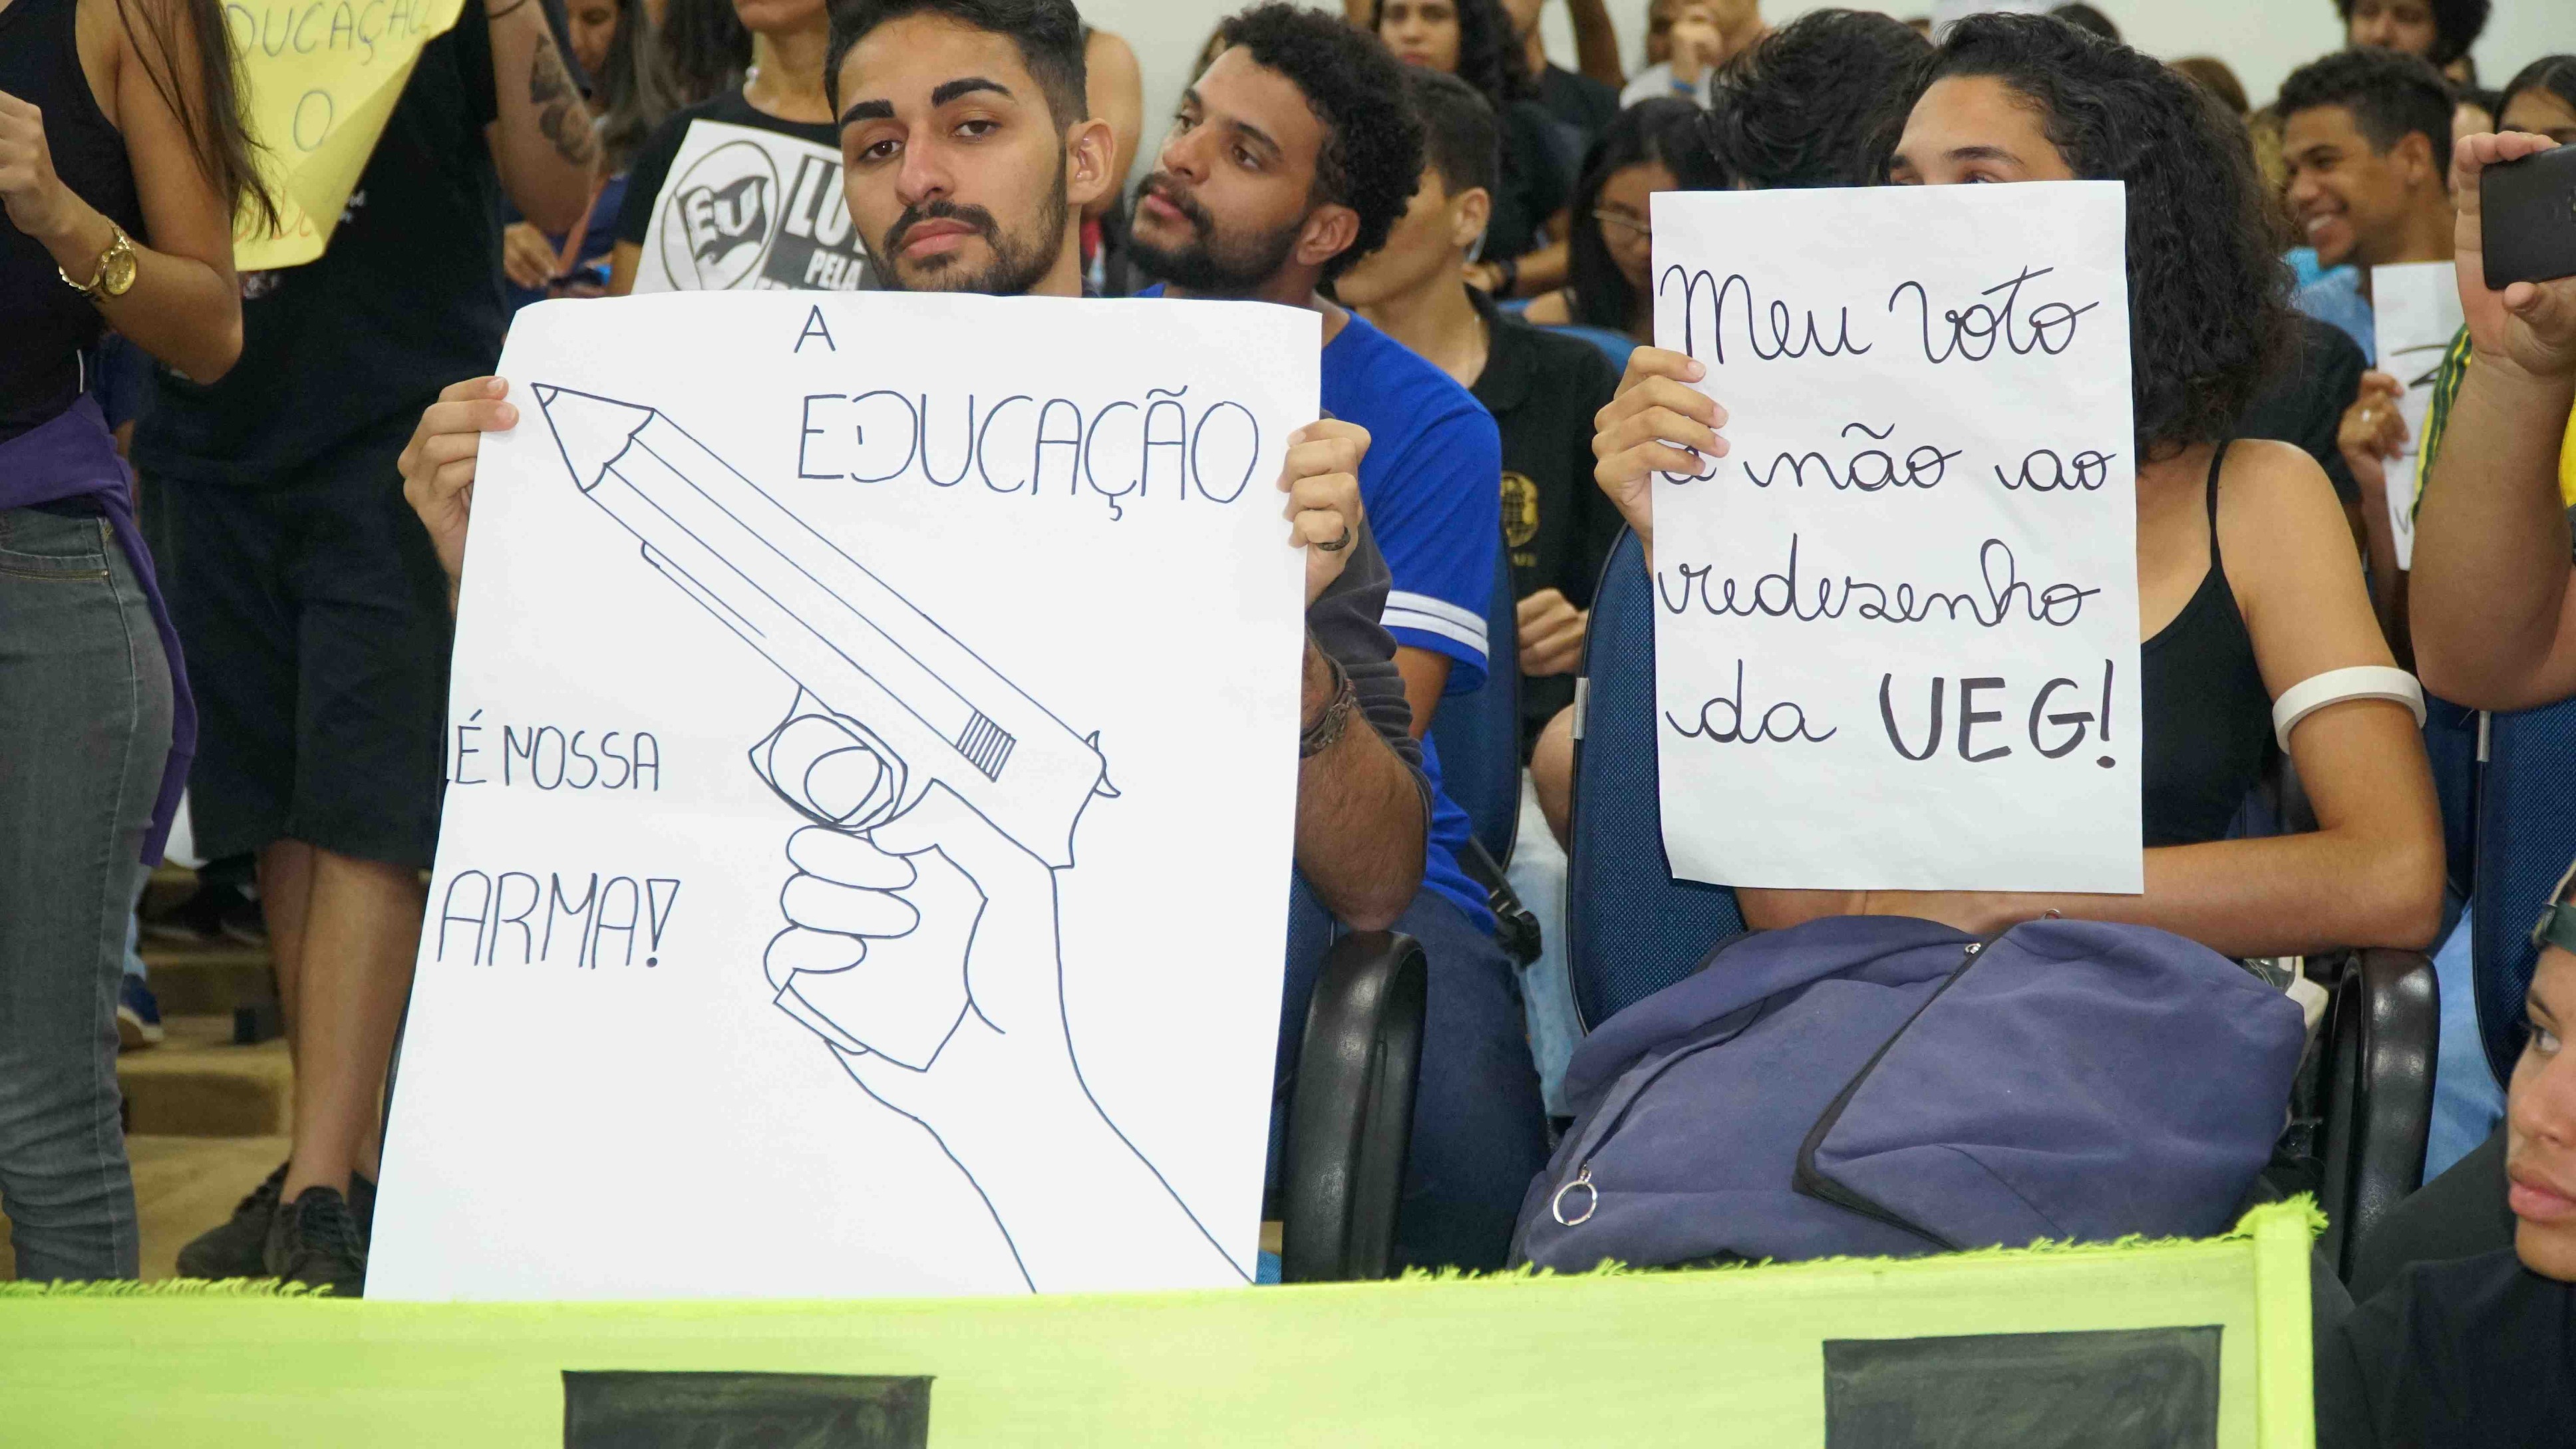 DUCAÇÃO
O
EU
PELA
A
EDUCAÇÃO
É NOSSA
ARMA!
Meu voto
é não ao
redesenho
da UEG!